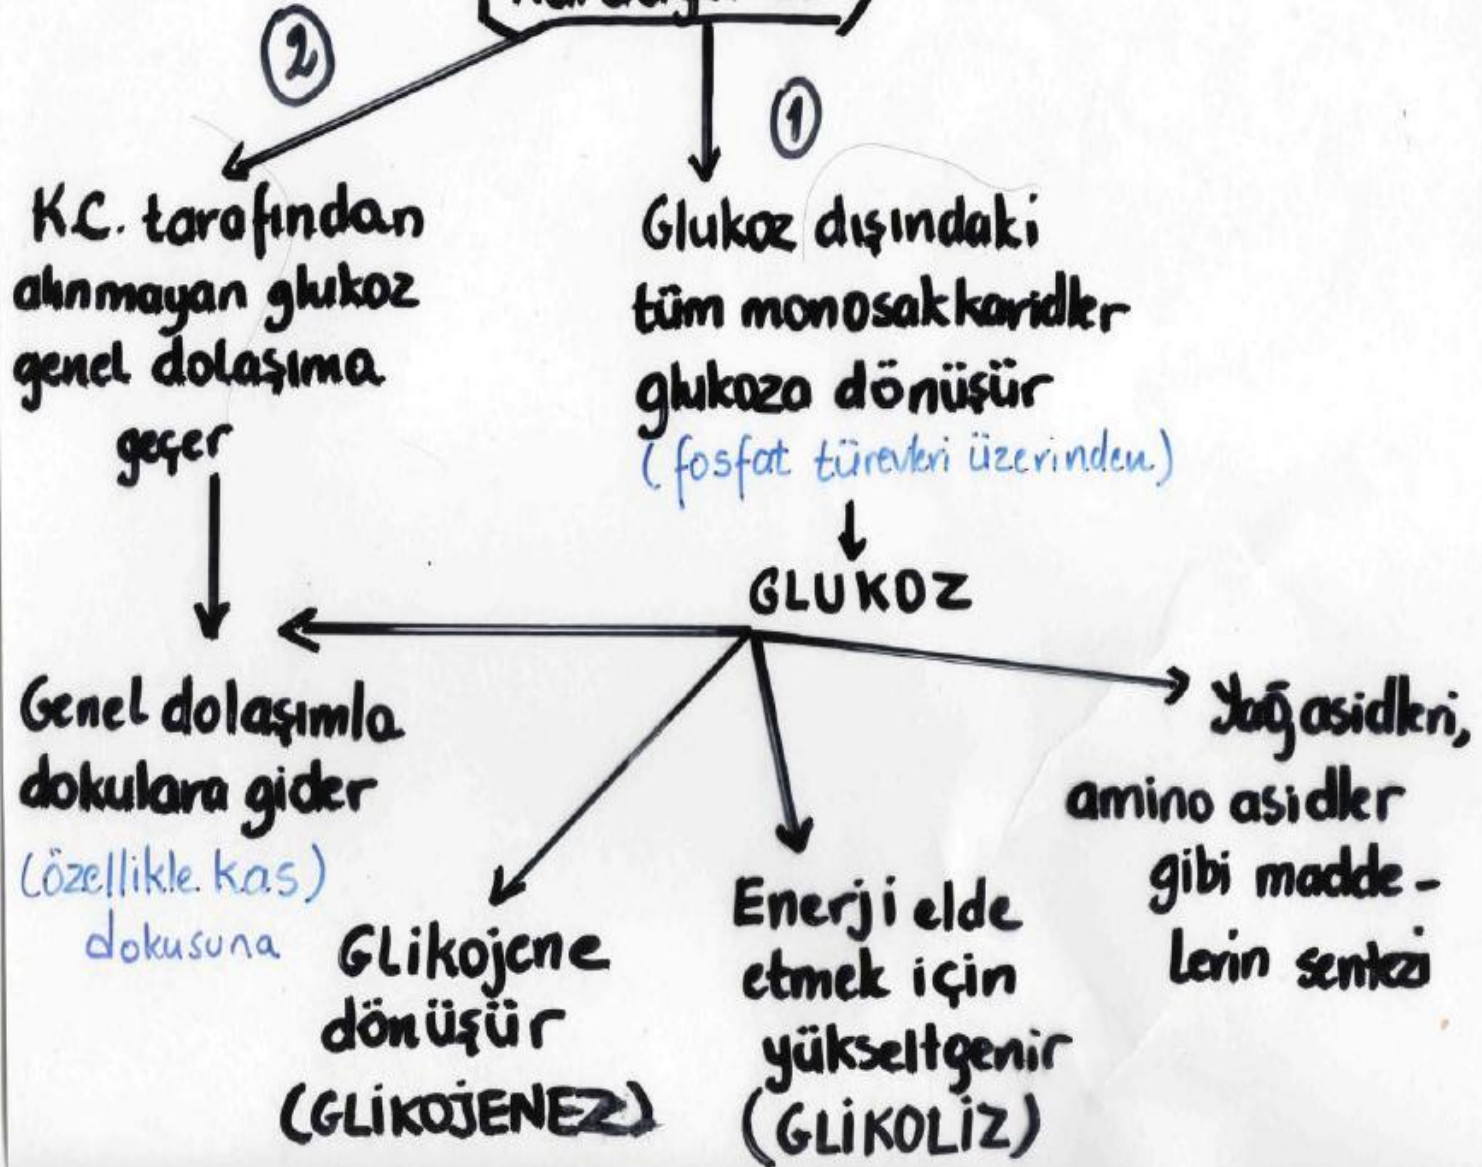 ②
①
K.C. tarafından
alınmayan glukoz
genel dolaşıma
geçer
Glukoz dışındaki
tüm monosakkaridler
glukoza dönüşür
(fosfat türevleri üzerinden)
GLUKOZ
Genel dolaşımla
dokulara gider
(özellikle kas)
dokusuna
Glikojene
dönüşür
(GLİKOJENEZ)
Enerji elde
etmek için
yükseltgenir
(GLİKOLİZ)
Yağ asidleri,
amino asidler
gibi madde-
lerin sentezi